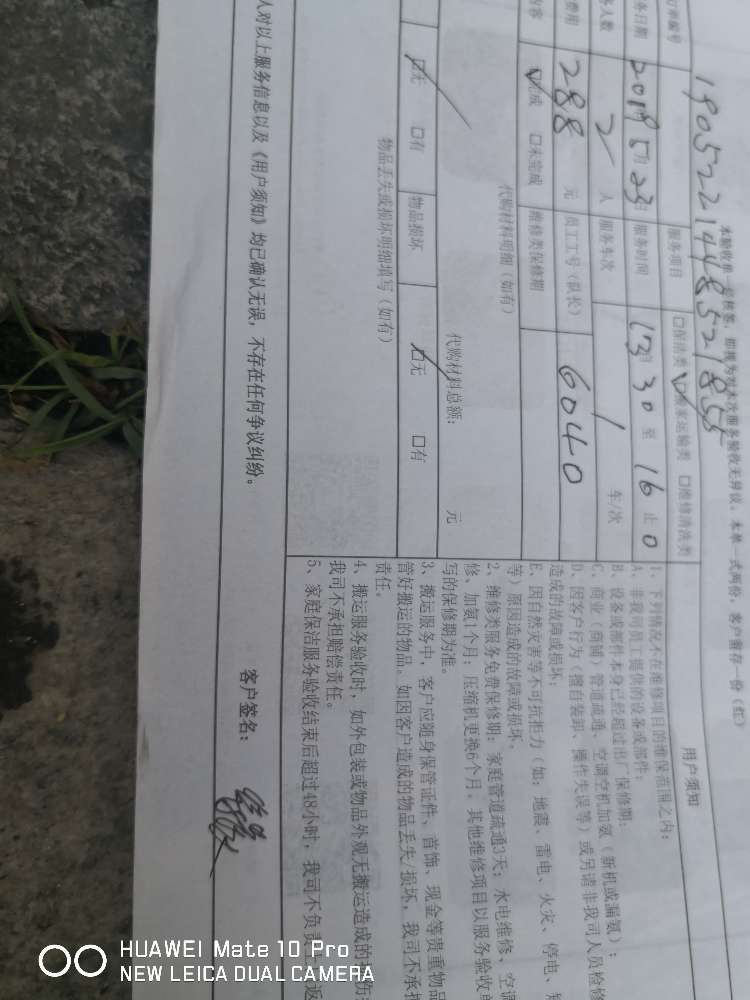 本单一式两份，客户留存一份（红）
订单编号 1905221948521855
服务项目 □保洁类 ☑搬家运输类 □维修清洗类
务日期 2019 5月23日 服务时间 13 30 至 16 止 0
务人数 2 人 服务车次 1 车/次
费用 288 元 员工工号（队长） 6040
内容 ☑完成 □未完成 维修类保修期
代购材料明细（如有）
代购材料总额： 元
☑无 □有 物品损坏 ☑无 □有
物品丢失或损坏明细填写（如有）
用户须知
1、下列情况不在维修项目的维保范围之内：
A、非我司员工提供的设备或部件；
B、设备或部件本身已经超过出厂保修期；
C、商业（商铺）管道疏通、空调空机加氨（新机或漏氨）；
D、因客户行为（擅自装卸、操作失误等）或另请非我司人员检修
造成的故障或损坏；
E、因自然灾害等不可抗拒力（如：地震、雷电、火灾、停电、
等）原因造成的故障或损坏。
2、维修类服务免费保修期：家庭管道疏通3天；水电维修、空调
修、加氨1个月；压缩机更换6个月，其他维修项目以服务验收单
写的保修期为准。
3、搬运服务中，客户应随身保管证件、首饰、现金等贵重物品
管好搬运的物品。如因客户造成的物品丢失/损坏，我司不承担
责任。
4、搬运服务验收时，如外包装或物品外观无搬运造成的损伤
我司不承担赔偿责任。
5、家庭保洁服务验收结束后超过48小时，我司不负责 返
人对以上服务信息以及《用户须知》均已确认无误，不存在任何争议纠纷。
客户签名：
HUAWEI Mate 10 Pro
NEW LEICA DUAL CAMERA